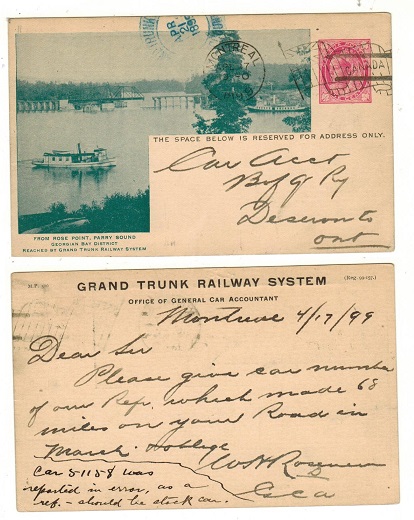 MONTREAL
CANADA
THE SPACE BELOW IS RESERVED FOR ADDRESS ONLY.
Car Acct
B of Q Ry
Deseronto
Ont
FROM ROSE POINT, PARRY SOUND
GEORGIAN BAY DISTRICT
REACHED BY GRAND TRUNK RAILWAY SYSTEM
GRAND TRUNK RAILWAY SYSTEM
OFFICE OF GENERAL CAR ACCOUNTANT
Montreal 4/17/99
Dear Sir
Please give car number
of our Ref. which made 68
miles on your Road in
March. & oblige
Car 51158 was
reported in error, as a
ref. - should be stock car.
G C A